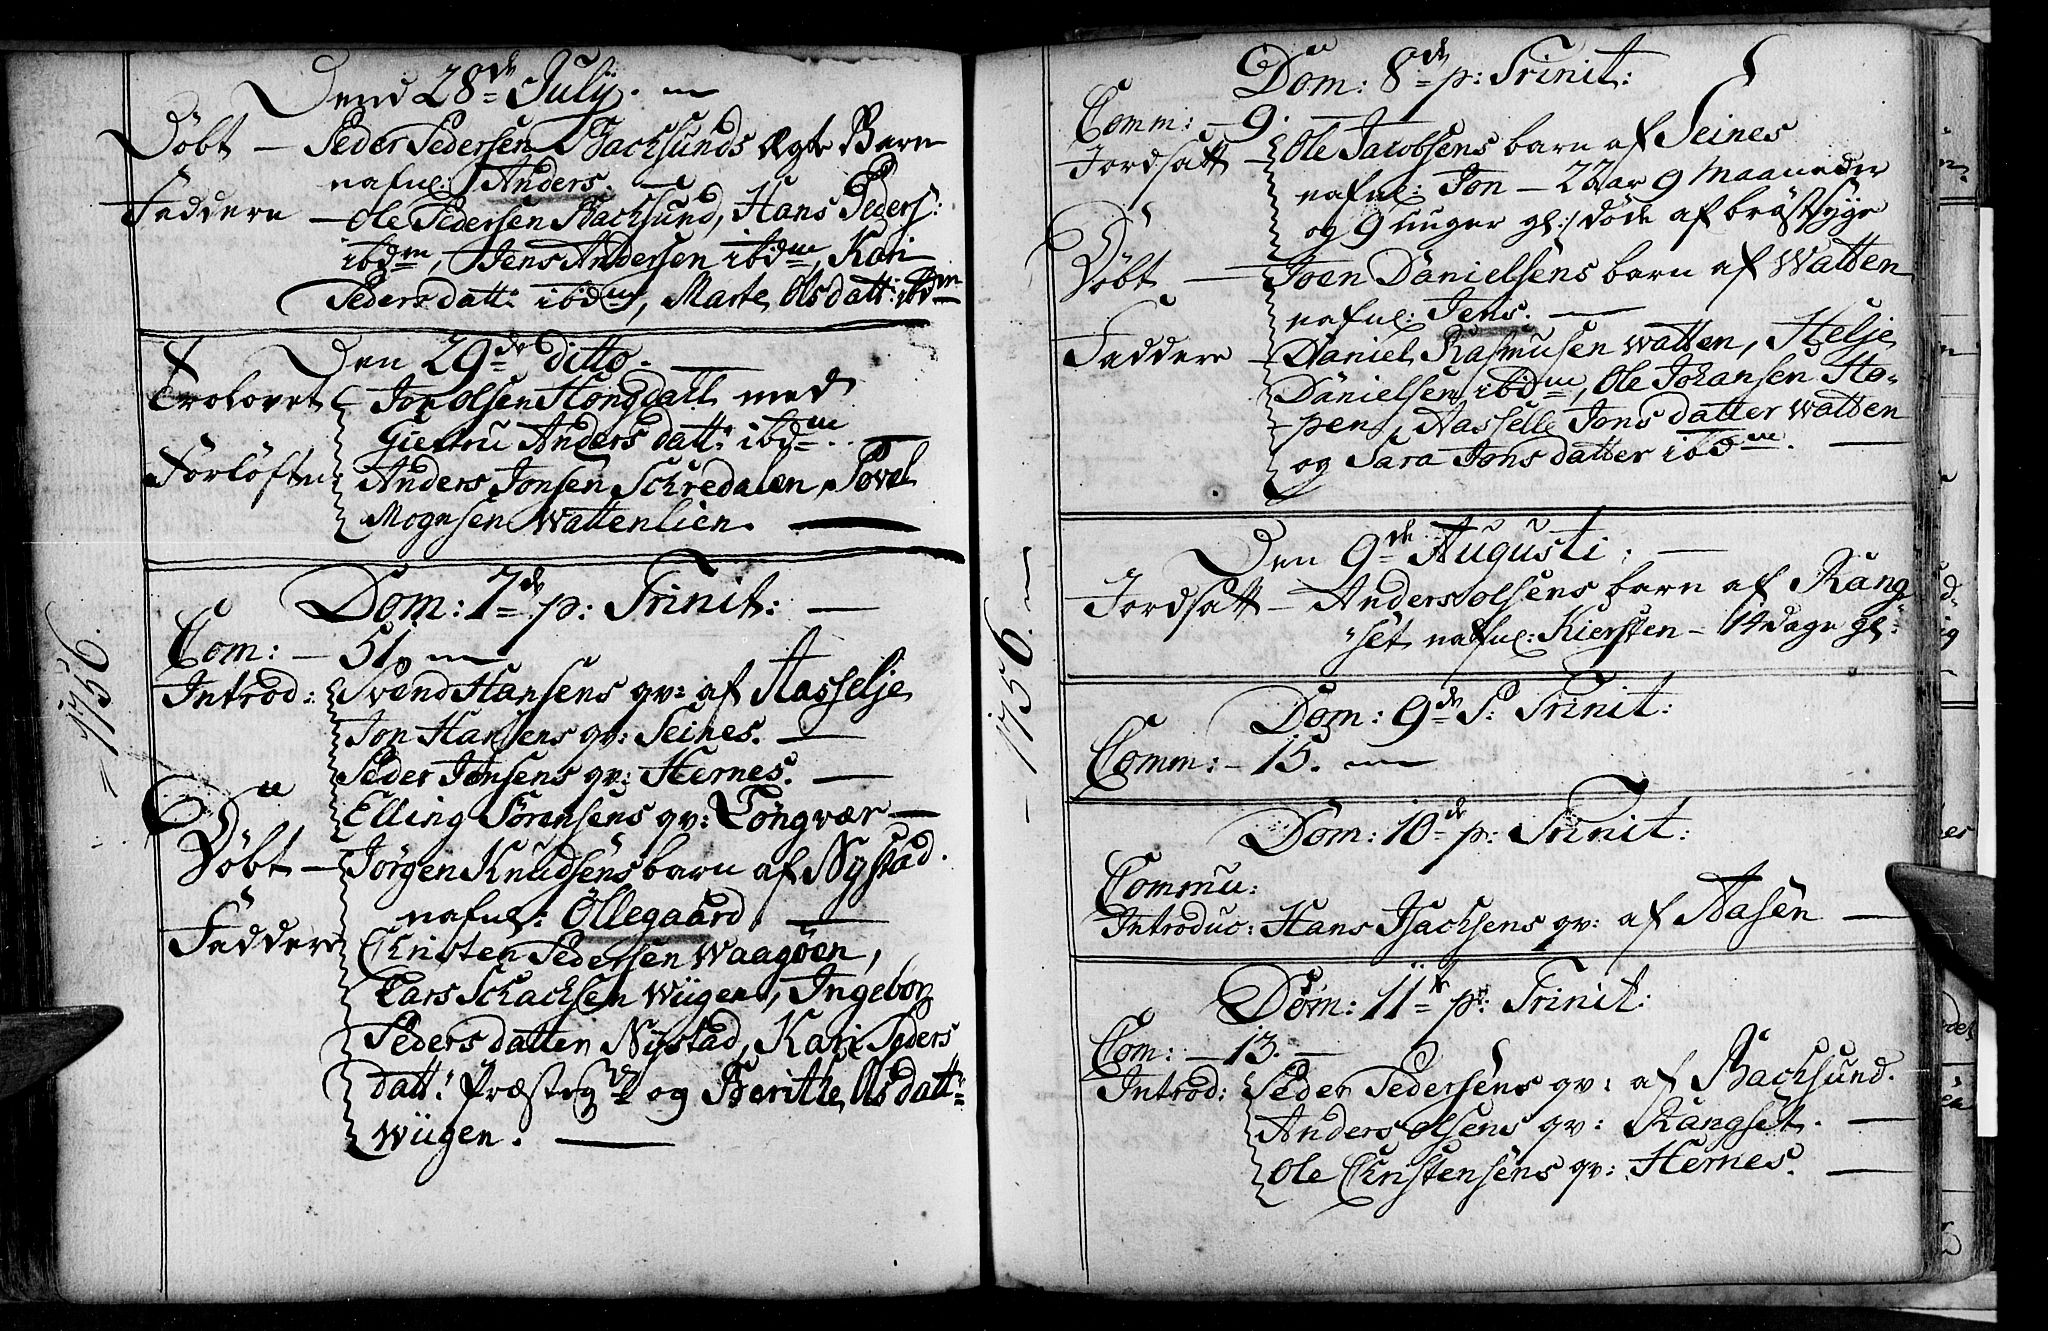 1756.
Dend 28de July.
Döbt – Peder Pedersen Backsunds Ægte Barn
nafnl: Anders.
Faddere – Ole Pedersen Backsund, Hans Peders:
ibdm, Jens Andersen ibdm, Kari
Pedersdatt: ibdm, Marte Olsdatt: ibdm
Den 29de ditto.
Trolovet Jon Olsen Hongdall med
Giertru Andersdatt: ibdm.
Forlöftn: Anders Jonsen Schredalen, Povel
Mognsen Wattenlien.
Dom: 7de p: Trinit:
Com: – 51.
Introd: Svend Hansens qv: af Hasselje
Jon Hansens qv: Seines.
Peder Jonsens qv: Hernes.
Elling Sörensens qv: Tongvær
Döbt – Jörgen Knudsens barn af Nystad.
nafnl: Öllegaard.
Faddere Christen Pedersen Waagöen,
Lars Schacksen Wiigen, Ingebor
Pedersdatter Nystad, Kari Peders
datt: Præsteg: og Berithe Olsdatt:
Wiigen.
1756.
Dom: 8de p: Trinit:
Comm: – 9.
Jordsatt – Ole Jacobsens barn af Seines
nafnl: Jon – 2 aar 9 Maaneder
og 9 uuger gl: döde af bröstsyge
Döbt – Joen Danielsens barn af Watten
nafnl: Jens.
Faddere – Daniel Rasmusen Watten, Helje
Danielsen ibdm, Ole Johansen Ho-
pen, Hasselle Jonsdatter Watten
og Sara Jonsdatter ibdm.
Den 9de Augusti:
Jordsatt – Anders Olsens barn af Rang
set nafnl: Kiersten – 14 dage gl:
Dom: 9de P: Trinit:
Comm: – 15.
Dom: 10de p: Trinit:
Commu:
Introduc: Hans Isacksens qv: af Aasen
Dom: 11te p: Trinit:
Com: – 13.
Introd: Peder Pedersens qv: af Backsund.
Anders Olsens qv: Rangset.
Ole Christensens qv: Hernes.